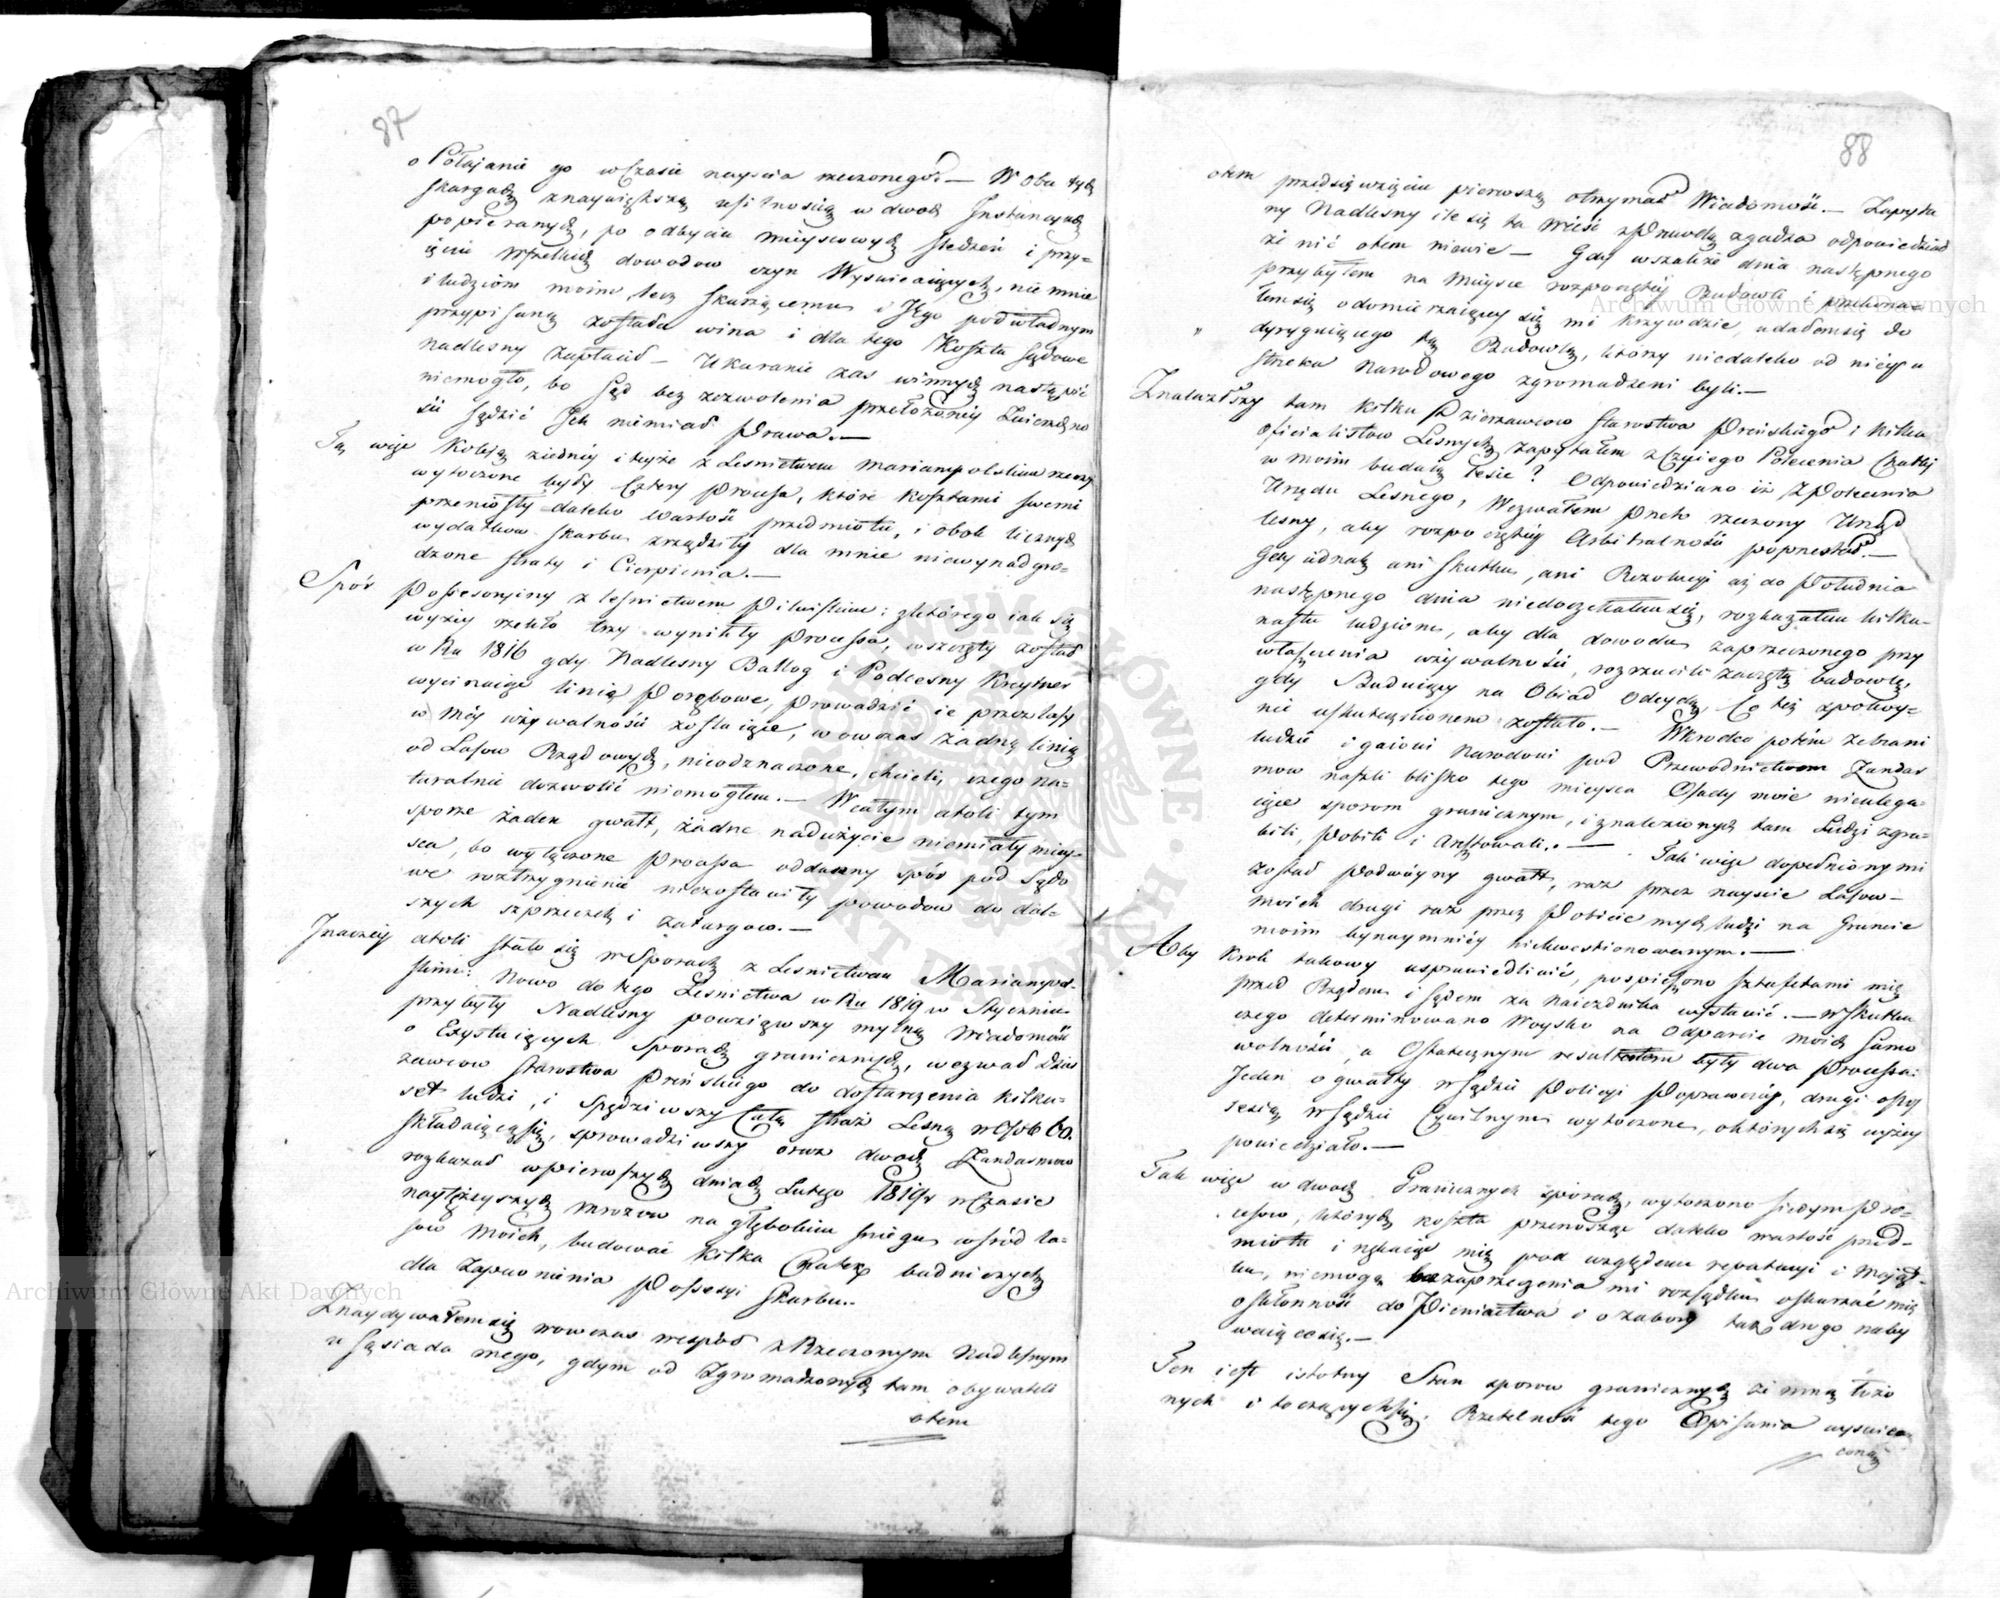 87
o Połajanie go w Czasie nayscia rzeczonego. — W obu tych
skargach znaywiększą usilnością w dwoch Instancyach
popieranych, po odbyciu mieyscowych sledzeń i przy=
ięciu wszelkich dowodow czyn Wyswiecaiących, nie mnie
i ludziom moim, lecz skarzącemu i Jego podwładnym
przypisaną została wina i dla tego Koszta sądowe
Nadlesny zapłacił — Ukaranie zas winnych nastąpić
niemogło, bo Sąd bez zezwolenia przełożoney Zwierzchno
sci sądzić Ich niemiał Prawa. —
Tą więc Koleją ziedney i teyże z Lesnictwem Maryampolskim rzeczy
wytoczone były Cztery Processa, które kosztami swemi
przeniosły daleko wartość przedmiotu, i obok licznych
wydatkow Skarbu zrządziły dla mnie niewynadgro=
dzone straty i Cierpienia. —
Spór Possessoryiny z lesnictwem Pilwiskim: z którego iak się
wyżey rzekło trzy wynikły Processa, wszczęty został
w Ru 1816 gdy Nadlesny Ballog i Podlesny Kreytner
wycinaiąc linią Porębowe, Prowadzić ie przez lasy
w Mey używalności zostaiące, wowczas żadną linią
od Lasow Rządowych, nieodznaczone, chcieli, czego na=
turalnie dozwolić niemogłem. — W całym atoli tym
sporze żaden gwałt, żadne nadużycie niemiały miey=
sca, bo wytoczone Processa oddawszy spór pod Sądo
we roztrzygnienie niezostawiły powodow do dal=
szych sprzeczek i zatargow. —
Inaczey atoli stało się w Sporach z Lesnictwem Maryampol=
skim: Nowo do tego Lesnictwa w Ru 1819 w Styczniu
przybyły Nadlesny powziąwszy mylną Wiadomość
o Exystuiących Sporach granicznych, wezwał Dzier
zawcow Starostwa Preńskiego do dostarczenia kilku=
set ludzi, i Spędziwszy całą straż Lesną w Osob 60.
składaiącą się, sprowadziwszy oraz dwoch Żandarmow
rozkazał w pierwszych dniach Lutego 1819 w Czasie
naytęższych mrozow na głębokim sniegu wśród la=
sow Moich, budować kilka Chatek budniczych
dla Zapewnienia Possessyi Skarbu.
Znaydywałem się wowczas wespół z Rzeczonym Nadlesnym
u sąsiada mego, gdym od Zgromadzonych tam obywateli
otem
88
otem przedsięwzięciu pierwszą otrzymał Wiadomość. — Zapyta
ny Nadlesny ile się ta wieść z Prawdą zgadza odpowiedział
że nić otem niewie — Gdy wszakże dnia następnego
przybyłem na mieysce rozpoczętey Budowli i przekona=
łem się o domierzaiącey się mi krzywdzie, udałem się do
dyryguiących tą Budowlą, którzy niedaleko od nieys u
strzelca Narodowego zgromadzeni byli. —
Znalazłszy tam kilku Dzierzawcow Starostwa Preńskiego i kilku
oficialistow Lesnych, zapytałem z Czyiego Polecenia Chatki
w moim buduią lesie? Odpowiedziano iż z Polecenia
Urzędu Lesnego, Wezwałem Przeto rzeczony Urząd
lesny, aby rozpoczętey Arbitralności poprzestał. —
Gdy iednak ani skutku, ani Rezolucyi aż do Południa
następnego dnia niedoczekałem się, rozkazałem kilku=
nastu ludziom, aby dla dowodu zaprzeczonego przy
właszczenia używalności, rozrzucili zaczętą budowlę,
gdy Buduiący na Obiad Odeydą, Co też spokoy=
nie uskutecznionem zostało. — Wkrotce potém Zebrani
ludzie i gaiowi Narodowi pod Przewodnictwem Żandar
mow naszli blisko tego mieysca Osady moie nieulega=
iące sporom granicznym, i znalezionych tam Ludzi zgra=
bili, Pobili i Aresztowali. — Tak więc dopełnionym
został Podwóyny gwałt, raz przez nayscie Lasow —
moich drugi raz przez Pobicie mych ludzi na Gruncie
moim bynaymniey niekwestionowanym. —
Aby Krok takowy usprawiedliwić, pospieszono sztafetami mię
przed Rządem i Sądem za Naiezdnika wystawić. — W skutku
czego determinowano Woysko na Odparcie moiey Samo
wolności, a Ostatecznym resultatem były dwa Processa:
Jeden o gwałty w Sądzie Policyi Poprawczey, drugi o Pos
sessią w Sądzie Cywilnym wytoczone, o których się wyżey
powiedziało. —
Tak więc w dwoch Granicznych sporach, wytoczono siedym Pro=
cesow, których koszta przenosząc daleko wartość przed=
miotu i nękaiąc mię pod względem reputacyi i Mająt=
ku, niemogą bez zaprzeczenia mi rozsądku oskarzać mię
o skłonność do Pieniactwa i o zabory tak drogo naby
waiące się. —
Ten iest istotny Stan sporow granicznych ze mną toczo
nych i toczących się. Rzetelność tego Opisania wyswie
coną
Archiwum Główne Akt Dawnych
Archiwum Główne Akt Dawnych
ARCHIWUM GŁÓWNE AKT DAWNYCH